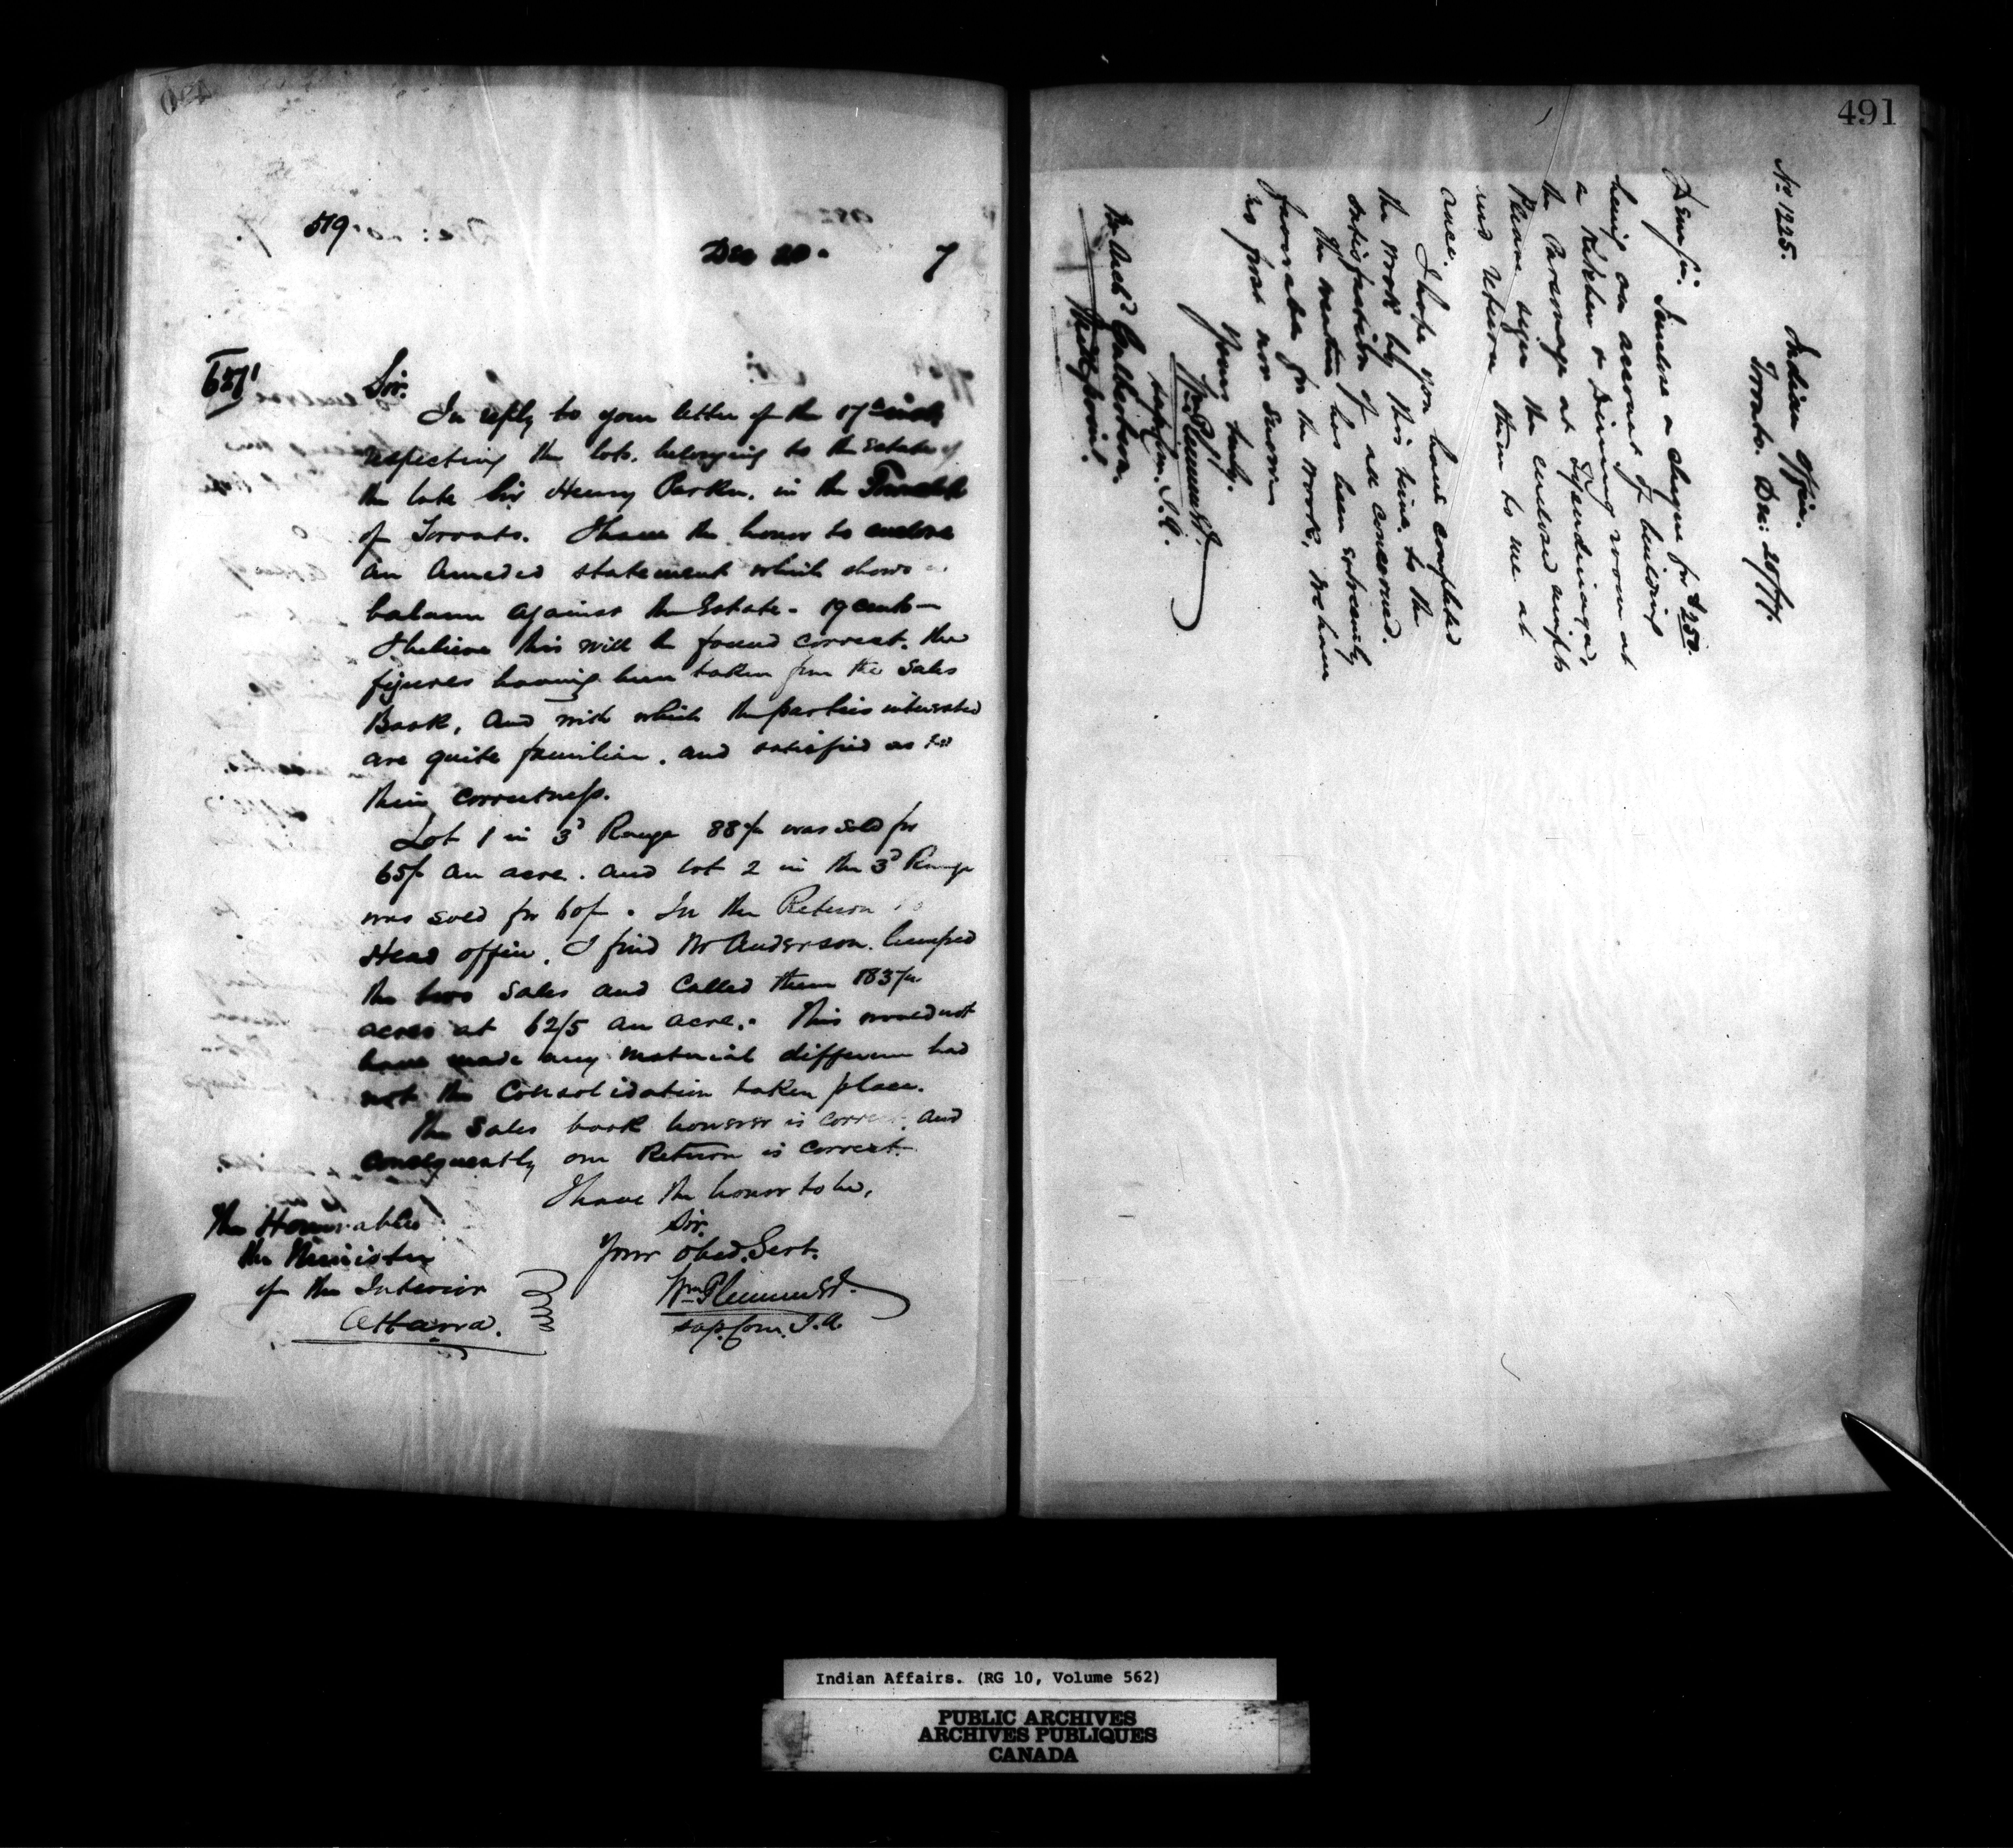 519
Dec 20. 7
651
Sir.
In reply to your letter of the 17th inst
respecting the lots. belonging to the Estate of
the late Sir Henry Parker. in the Township
of Toronto. I have the honor to enclose
an Amended statement which shows a
balance against the Estate. 19 cents—
I believe this will be found correct. the
figures having been taken from the Sales
Book, and with which the parties interested
are quite familiar. and satisfied as to
their correctness.
Lot 1 in 3d Range 88 was sold for
65/ an acre. and lot 2 in the 3d Range
was sold for 60/. In the Return to
Head office. I find Mr Anderson. lumped
the two sales and called them 183
acres at 62/5 an acre. This would not
have made any material difference had
not the Consolidation taken place.
The Sales book however is correct. and
consequently our Return is correct.
I have the honor to be,
Sir.
Your Obed. Servt.
Wm Plummer
Sup. Com. I.A.
The Honorable
the Minister
of the Interior
Ottawa.
491
No 1225. Indian Office.
Toronto. Dec: 20/77.
Dear Sir. I enclose a cheque for $250.
being on account of building
a Kitchen & Dining room at
the Parsonage at
Please sign the enclosed receipts
and return them to me at
once.
I hope you have completed
the work by this time to the
satisfaction of all concerned.
The weather has been extremely
favorable for the work. We have
no frost nor snow
Yours truly.
Wm Plummer
Sup. Com. I.A.
Mr Culbertson
Indian Affairs. (RG 10, Volume 562)
PUBLIC ARCHIVES
ARCHIVES PUBLIQUES
CANADA